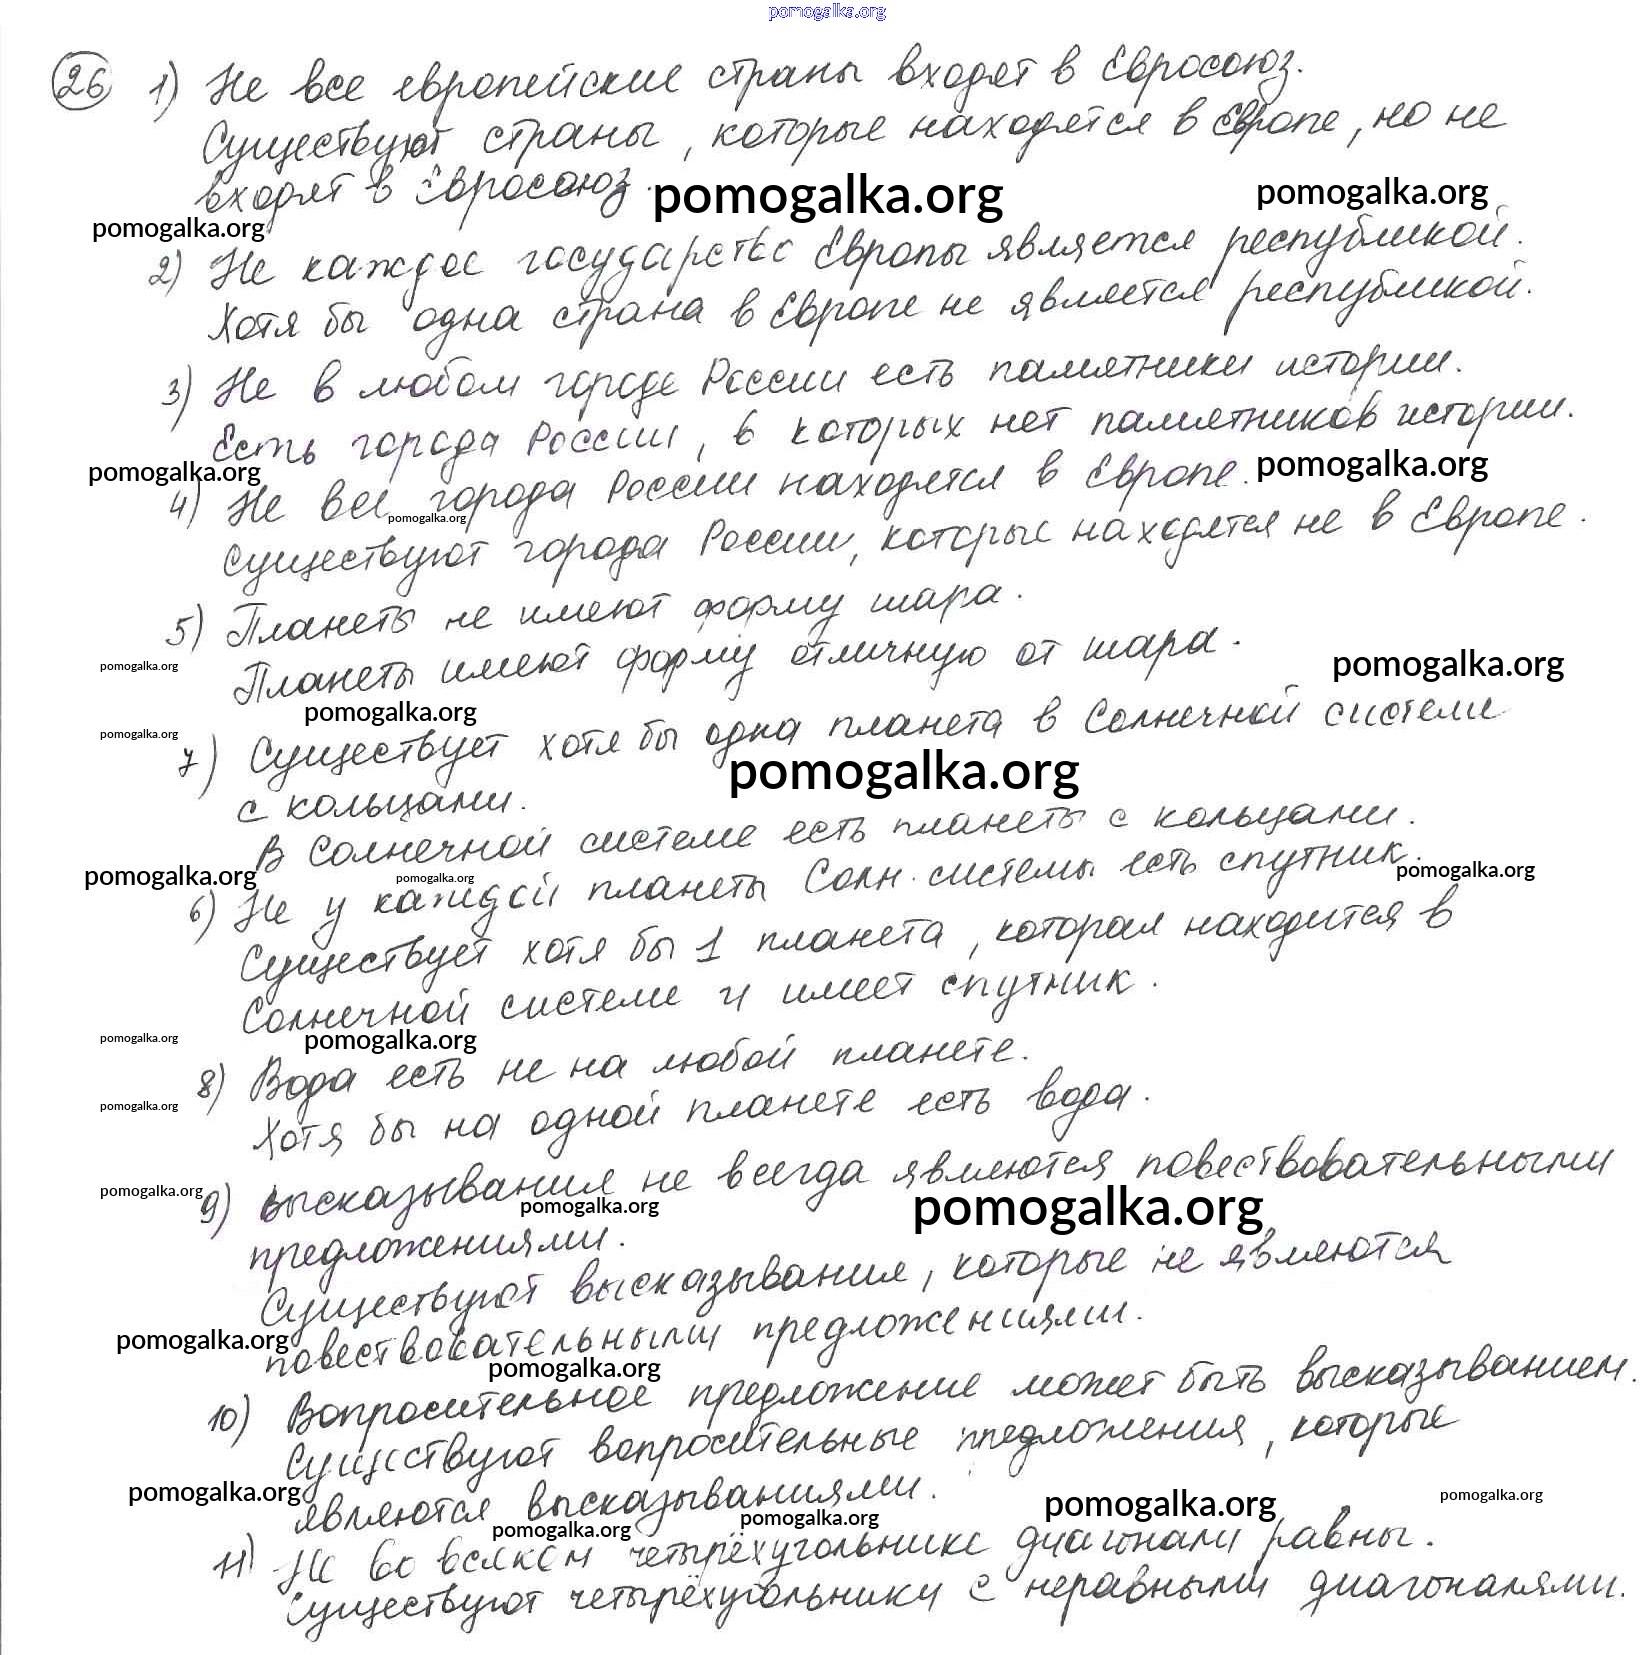 pomogalka.org
26 1) Не все европейские страны входят в Евросоюз.
Существуют страны, которые находятся в Европе, но не
входят в Евросоюз.
pomogalka.org
pomogalka.org
pomogalka.org
2) Не каждое государство Европы является республикой.
Хотя бы одна страна в Европе не является республикой.
3) Не в любом городе России есть памятники истории.
Есть города России, в которых нет памятников истории.
pomogalka.org
pomogalka.org
4) Не все города России находятся в Европе.
pomogalka.org
Существуют города России, которые находятся не в Европе.
5) Планеты не имеют форму шара.
Планеты имеют форму отличную от шара.
pomogalka.org
pomogalka.org
pomogalka.org
pomogalka.org
7) Существует хотя бы одна планета в Солнечной системе
pomogalka.org
с кольцами.
В Солнечной системе есть планеты с кольцами.
pomogalka.org
pomogalka.org
pomogalka.org
6) Не у каждой планеты Солн. системы есть спутник.
Существует хотя бы 1 планета, которая находится в
Солнечной системе и имеет спутник.
pomogalka.org
pomogalka.org
8) Вода есть не на любой планете.
pomogalka.org
Хотя бы на одной планете есть вода.
9) высказывания не всегда являются повествовательными
pomogalka.org
pomogalka.org
pomogalka.org
предложениями.
Существуют высказывания, которые не являются
pomogalka.org
повествовательными предложениями.
pomogalka.org
10) Вопросительное предложение может быть высказыванием.
Существуют вопросительные предложения, которые
являются высказываниями.
pomogalka.org
pomogalka.org
pomogalka.org
pomogalka.org
pomogalka.org
11) Не во всяком четырёхугольнике диагонали равны.
Существуют четырёхугольники с неравными диагоналями.